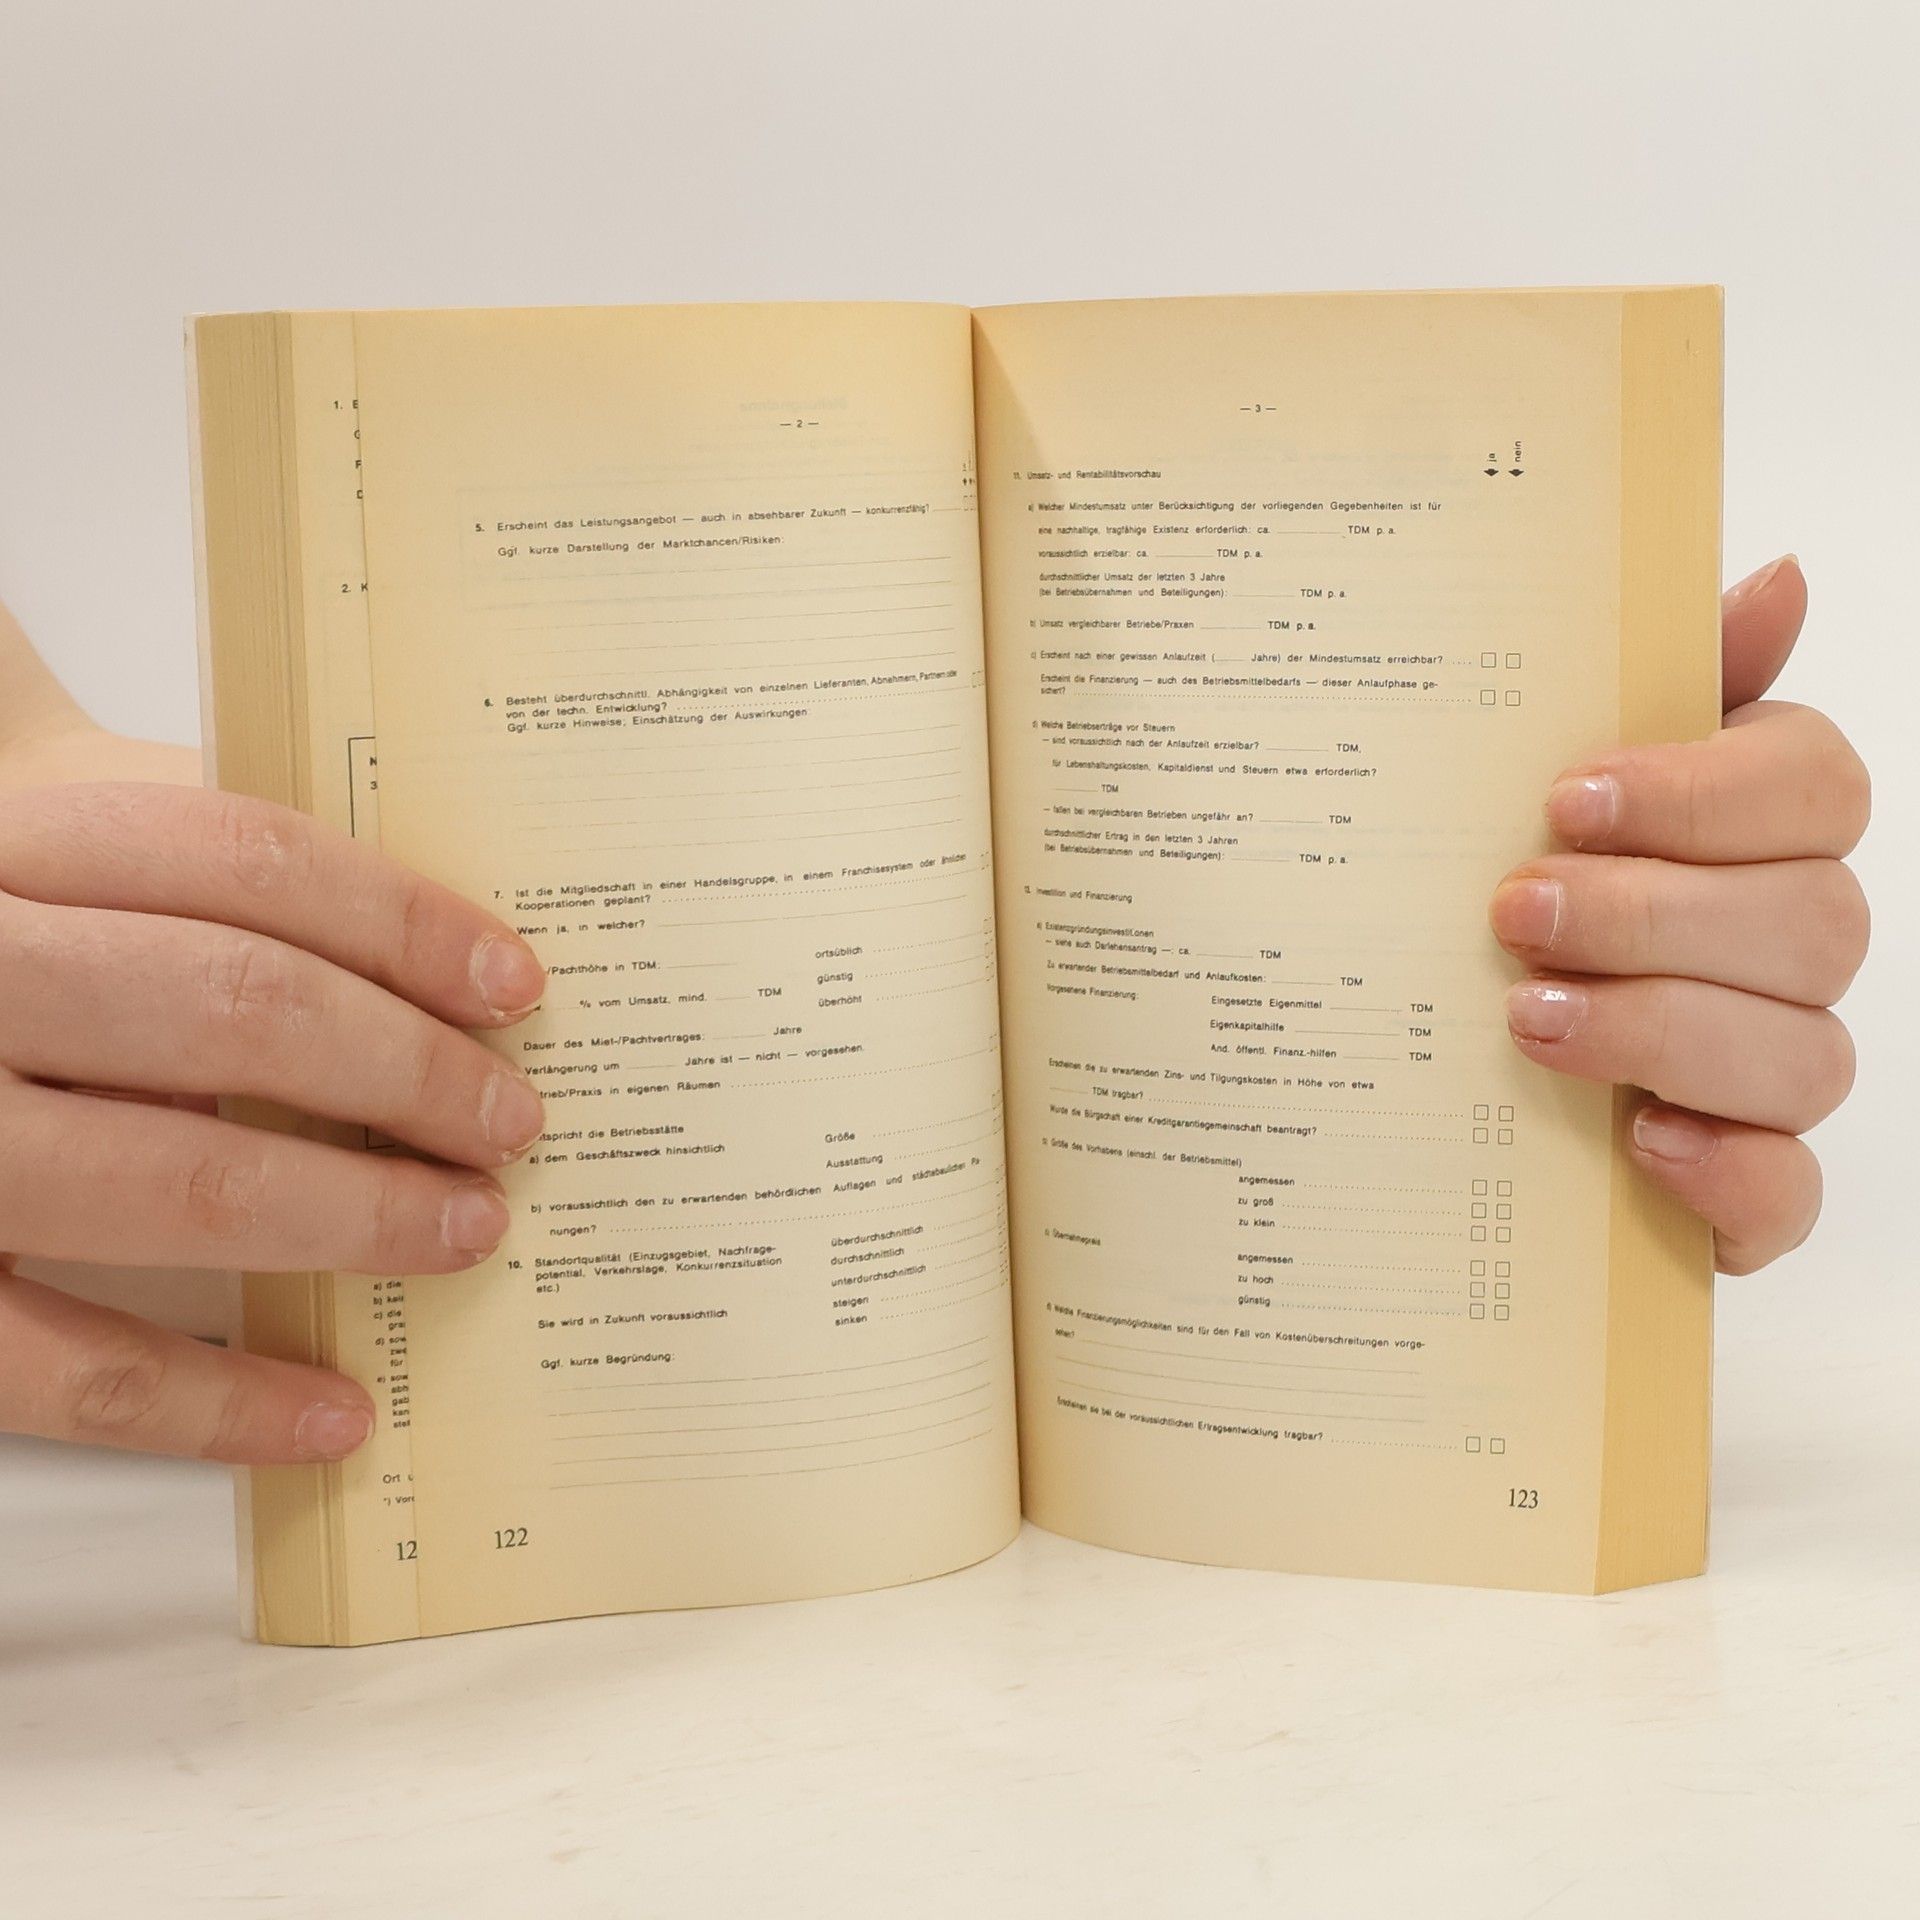 1. E
G
F
D
2. K
N
3
a) die
b) kei
c) die
gra
d) sow
zwe
für
e) sow
abh
gab
kan
stel
Ort u
*) Vor
12
— 2 —
5. Erscheint das Leistungsangebot — auch in absehbarer Zukunft — konkurrenzfähig?
Ggf. kurze Darstellung der Marktchancen/Risiken:
6. Besteht überdurchschnittl. Abhängigkeit von einzelnen Lieferanten, Abnehmern, Partnern oder
von der techn. Entwicklung?
Ggf. kurze Hinweise; Einschätzung der Auswirkungen:
7. Ist die Mitgliedschaft in einer Handelsgruppe, in einem Franchisesystem oder ähnlichen
Kooperationen geplant?
Wenn ja, in welcher?
/Pachthöhe in TDM: ortsüblich
günstig
% vom Umsatz, mind. TDM überhöht
Dauer des Miet-/Pachtvertrages: Jahre
Verlängerung um Jahre ist — nicht — vorgesehen.
trieb/Praxis in eigenen Räumen
tspricht die Betriebsstätte
a) dem Geschäftszweck hinsichtlich Größe
Ausstattung
b) voraussichtlich den zu erwartenden behördlichen Auflagen und städtebaulichen Pla-
nungen?
10. Standortqualität (Einzugsgebiet, Nachfrage- überdurchschnittlich
potential, Verkehrslage, Konkurrenzsituation durchschnittlich
etc.) unterdurchschnittlich
Sie wird in Zukunft voraussichtlich steigen
sinken
Ggf. kurze Begründung:
122
— 3 —
ja nein
11. Umsatz- und Rentabilitätsvorschau
a) Welcher Mindestumsatz unter Berücksichtigung der vorliegenden Gegebenheiten ist für
eine nachhaltige, tragfähige Existenz erforderlich: ca. TDM p. a.
voraussichtlich erzielbar: ca. TDM p. a.
durchschnittlicher Umsatz der letzten 3 Jahre
(bei Betriebsübernahmen und Beteiligungen): TDM p. a.
b) Umsatz vergleichbarer Betriebe/Praxen TDM p. a.
c) Erscheint nach einer gewissen Anlaufzeit ( Jahre) der Mindestumsatz erreichbar?
Erscheint die Finanzierung — auch des Betriebsmittelbedarfs — dieser Anlaufphase ge-
sichert?
d) Welche Betriebserträge vor Steuern
— sind voraussichtlich nach der Anlaufzeit erzielbar? TDM,
für Lebenshaltungskosten, Kapitaldienst und Steuern etwa erforderlich?
TDM
— fallen bei vergleichbaren Betrieben ungefähr an? TDM
durchschnittlicher Ertrag in den letzten 3 Jahren
(bei Betriebsübernahmen und Beteiligungen): TDM p. a.
12. Investition und Finanzierung
a) Existenzgründungsinvestitionen
— siehe auch Darlehensantrag —: ca. TDM
Zu erwartender Betriebsmittelbedarf und Anlaufkosten: TDM
Vorgesehene Finanzierung: Eingesetzte Eigenmittel TDM
Eigenkapitalhilfe TDM
And. öffentl. Finanz.-hilfen TDM
Erscheinen die zu erwartenden Zins- und Tilgungskosten in Höhe von etwa
TDM tragbar?
Wurde die Bürgschaft einer Kreditgarantiegemeinschaft beantragt?
b) Größe des Vorhabens (einschl. der Betriebsmittel)
angemessen
zu groß
zu klein
c) Übernahmepreis
angemessen
zu hoch
günstig
d) Welche Finanzierungsmöglichkeiten sind für den Fall von Kostenüberschreitungen vorge-
sehen?
Erscheinen sie bei der voraussichtlichen Ertragsentwicklung tragbar?
123